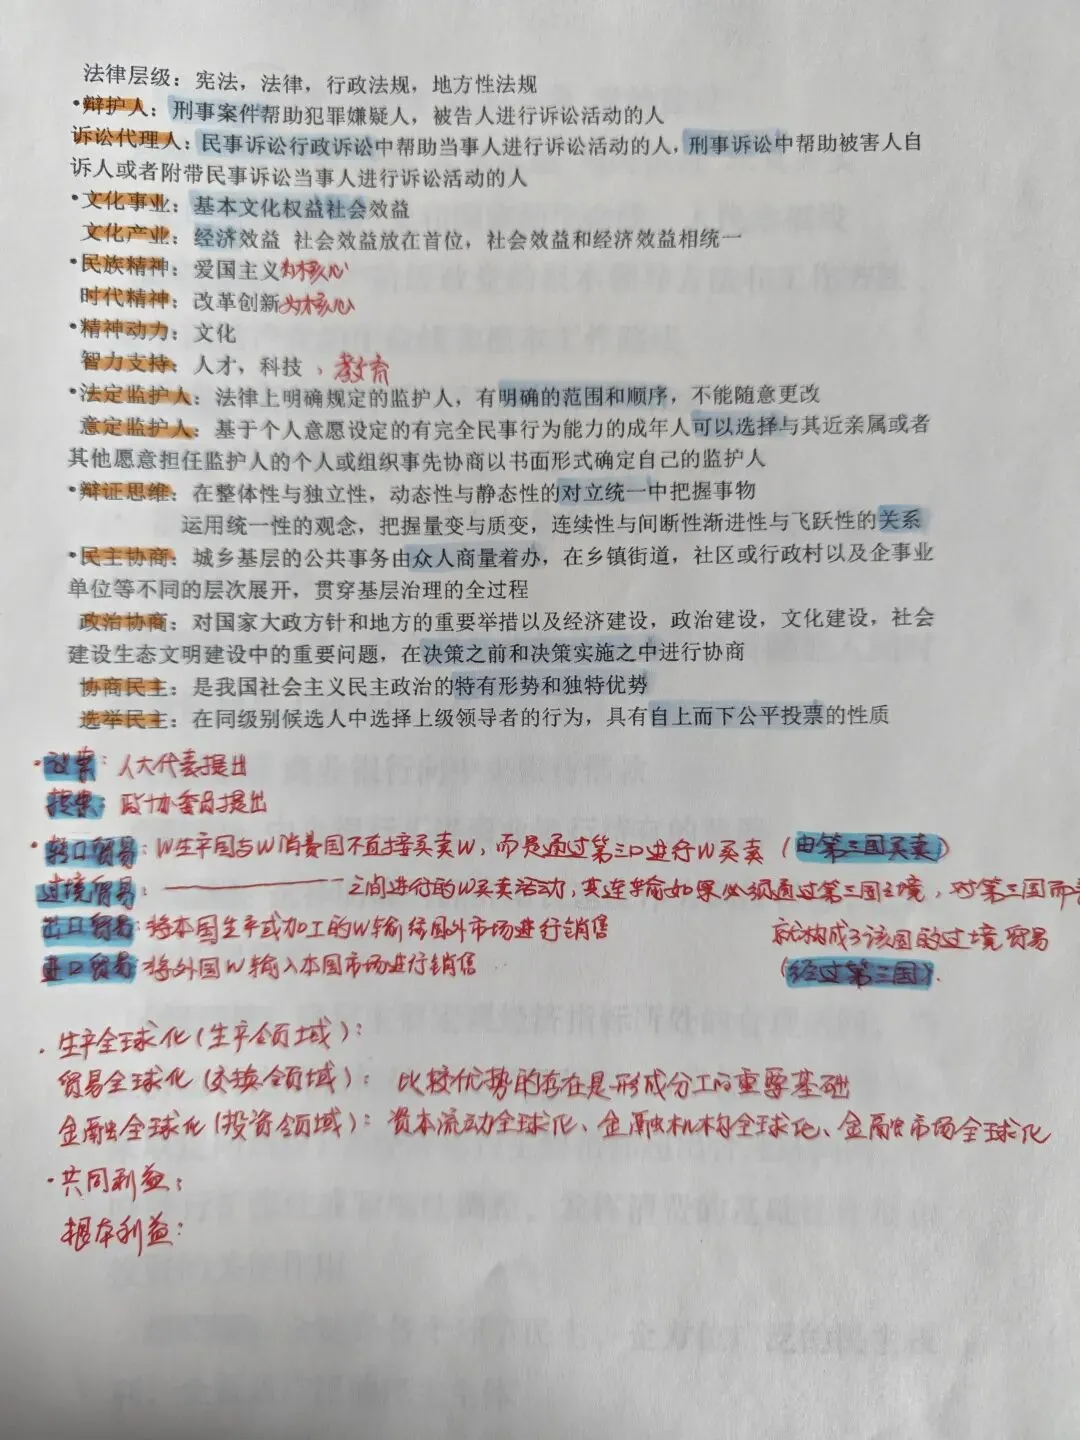 法律层级：宪法，法律，行政法规，地方性法规
•辩护人：刑事案件帮助犯罪嫌疑人，被告人进行诉讼活动的人
诉讼代理人：民事诉讼行政诉讼中帮助当事人进行诉讼活动的人，刑事诉讼中帮助被害人自
诉人或者附带民事诉讼当事人进行诉讼活动的人
•文化事业：基本文化权益社会效益
文化产业：经济效益 社会效益放在首位，社会效益和经济效益相统一
•民族精神：爱国主义为核心
时代精神：改革创新为核心
•精神动力：文化
智力支持：人才，科技、教育
•法定监护人：法律上明确规定的监护人，有明确的范围和顺序，不能随意更改
意定监护人：基于个人意愿设定的有完全民事行为能力的成年人可以选择与其近亲属或者
其他愿意担任监护人的个人或组织事先协商以书面形式确定自己的监护人
•辩证思维：在整体性与独立性，动态性与静态性的对立统一中把握事物
运用统一性的观念，把握量变与质变，连续性与间断性渐进性与飞跃性的关系
•民主协商：城乡基层的公共事务由众人商量着办，在乡镇街道，社区或行政村以及企事业
单位等不同的层次展开，贯穿基层治理的全过程
政治协商：对国家大政方针和地方的重要举措以及经济建设，政治建设，文化建设，社会
建设生态文明建设中的重要问题，在决策之前和决策实施之中进行协商
协商民主：是我国社会主义民主政治的特有形势和独特优势
选举民主：在同级别候选人中选择上级领导者的行为，具有自上而下公平投票的性质
•议案：人大代表提出
提案：政协委员提出
•转口贸易：W生产国与W消费国不直接买卖W，而是通过第三口进行W买卖（由第三国买卖）
过境贸易：————之间进行的W买卖活动，其运输如果必须通过第三国之境，对第三国而言
出口贸易：将本国生产或加工的W输给国外市场进行销售 就构成了该国的过境贸易
进口贸易：将外国W输入本国市场进行销售 （经过第三国）.
•生产全球化（生产领域）：
贸易全球化（交换领域）：比较优势的存在是形成分工的重要基础
金融全球化（投资领域）：资本流动全球化、金融机构全球化、金融市场全球化
•共同利益：
根本利益：